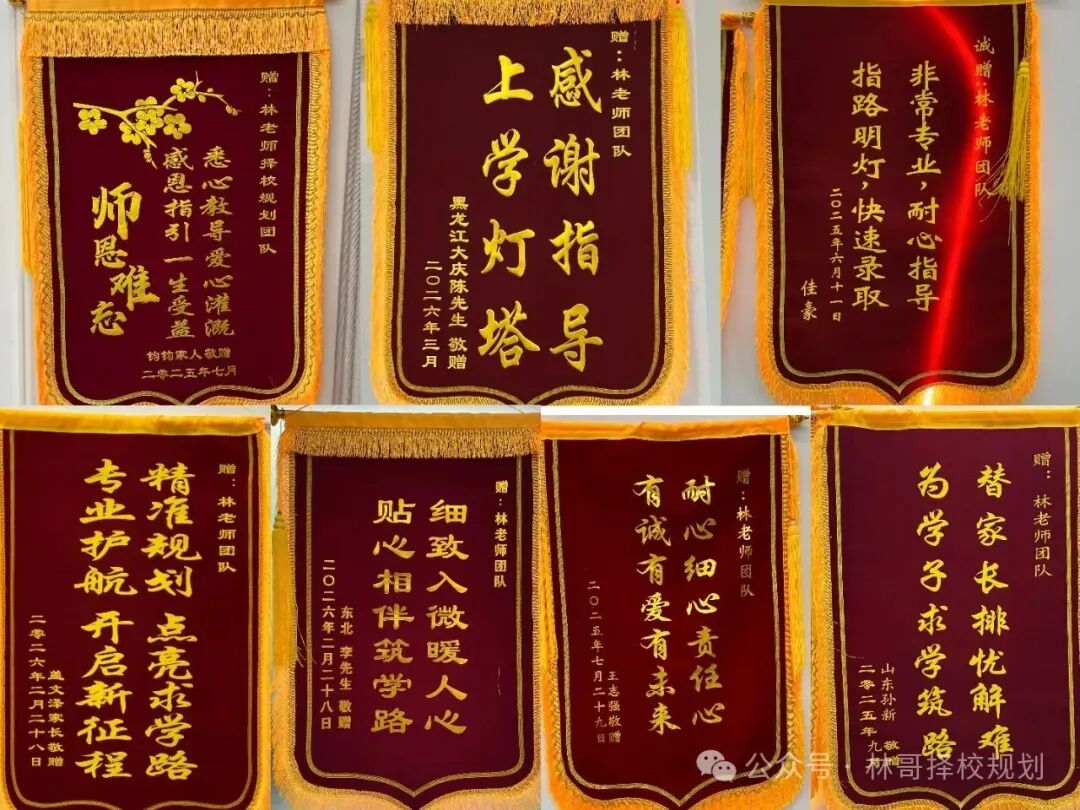 赠：林老师择校规划团队
悉心教导爱心灌溉
感恩指引一生受益
师恩难忘
钧钧家人敬赠
二零二五年七月
赠：林老师团队
感谢指导
上学灯塔
黑龙江大庆陈先生 敬赠
二〇二六年三月
诚赠：林老师团队
非常专业，耐心指导
指路明灯，快速录取
二〇二五年六月十一日
佳豪
赠：林老师团队
精准规划 点亮求学路
专业护航 开启新征程
盖文泽家长敬赠
二零二六年二月二十八日
赠：林老师团队
细致入微暖人心
贴心相伴筑学路
东北 李先生 敬赠
二〇二六年二月二十八日
赠：林老师团队
耐心细心责任心
有诚有爱有未来
王志强敬赠
二〇二五年七月二十九日
赠：林老师团队
替家长排忧解难
为学子求学筑路
山东孙新 敬赠
二零二五年九月
公众号·林哥择校规划